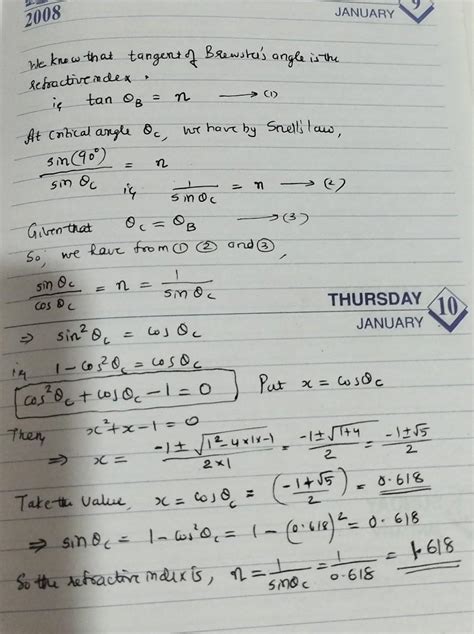 2008
JANUARY
9
We know that tangent of Brewster's angle is the
refractive index.
ie, tan θ_B = n ⟶ (1)
At critical angle θ_c, we have by Snell's law,
sin(90°)/sin θ_c = n ie, 1/sin θ_c = n ⟶ (2)
Given that θ_c = θ_B ⟶ (3)
So, we have from ① ② and ③,
sin θ_c/cos θ_c = n = 1/sin θ_c
THURSDAY 10
JANUARY
⇒ sin²θ_c = cos θ_c
ie, 1 - cos²θ_c = cos θ_c
cos²θ_c + cos θ_c - 1 = 0 Put x = cos θ_c
Then, x² + x - 1 = 0
⇒ x = (-1 ± √(1² - 4×1×-1))/(2×1) = (-1 ± √(1+4))/2 = (-1 ± √5)/2
Take the value, x = cos θ_c = ((-1+√5)/2) = 0.618
⇒ sin θ_c = 1 - cos²θ_c = 1 - (0.618)² = 0.618
So the refractive index is, n = 1/sin θ_c = 1/0.618 = 1.618